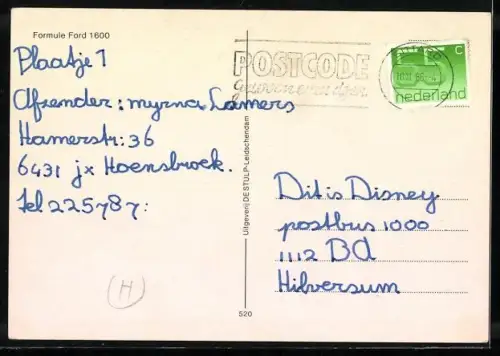 Formule Ford 1600
Plaatje 1
Afzender: myrna Lamers
Hamerstr: 36
6431 jx Hoensbroek.
tel 225787:
POSTCODE
C
nederland
Uitgeverij DE STULP-Leidschendam
Dit is Disney
postbus 1000
1112 BD
Hilversum
H
520